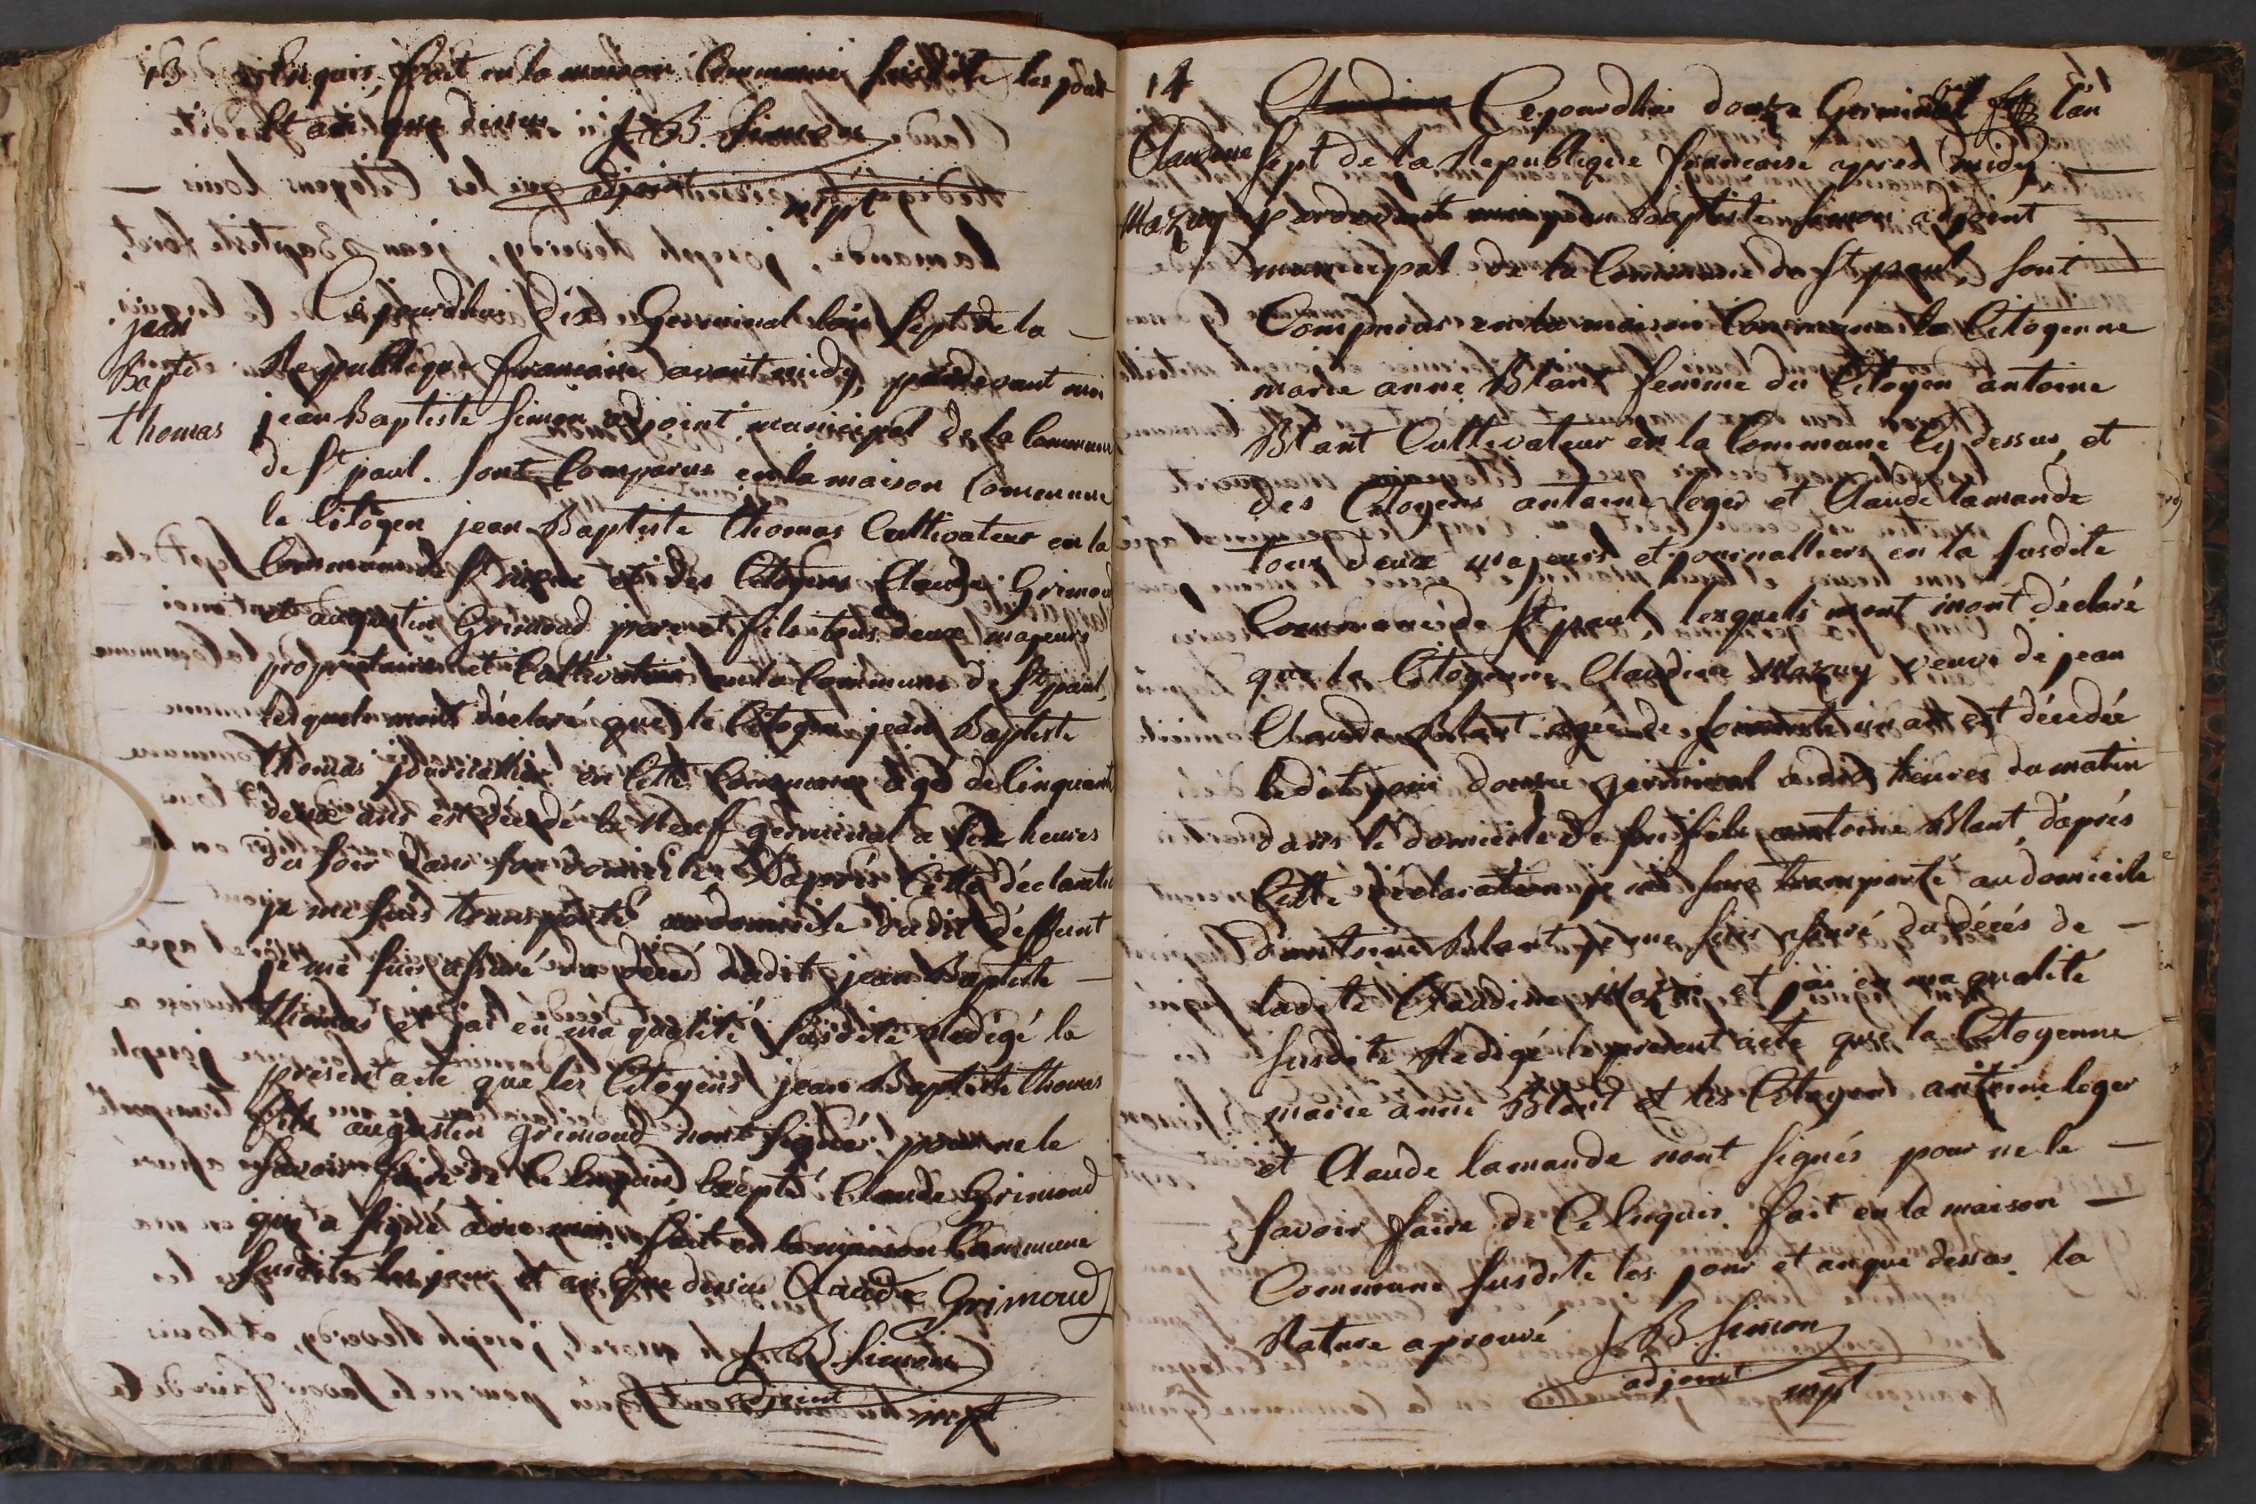 13 Enquis, fait en la maison Commune susdite les jour
et an que dessus J B. Simon
adjoint
mpl
jean
Bapte
thomas
Cejourdhui dix Germinal l'an sept de la
Republique francaise avant midy, pardevant moi
jean Baptiste Simon adjoint municipal de la Commune
de St paul. sont Comparus en la maison Commune
le Citoyen jean Baptiste thomas Cultivateur en la
Commune de St et des Citoyens Claude Grimoud
et augustin Grimoud pere et fils tous deux majeurs
proprietaires et Cultivateurs en la Commune de St paul,
lesquels mont déclaré que le Citoyen jean Baptiste
thomas journallier en Cette Commune agé de Cinquante
deux ans est décedé le Neuf germinal a heures
du soir dans son domicile. D'aprés Cette déclaration
je me suis transporté au domicile dudit déffunt
je me suis assuré du décés dudit jean Baptiste
thomas et j'ai en ma qualité susdite Redigé le
present acte que les Citoyens jean Baptiste thomas
fils augustin grimoud nont signés pour ne le
savoir faire de Ce Enquis Exepté Claude Grimoud
qui a signé avec moi fait en la maison Commune
susdite les jour et an que dessus Claude Grimoud
J B Simon
adjoint mpl
14
Claudine
Mazuy
Claudine Cejourdhui douze Germinal l'an
sept de la Republique francaise apres midy
pardevant moi jean Baptiste Simon adjoint
municipal de la Commune de St paul, sont
Comparus en la maison Commune la Citoyenne
marie anne Blant femme du Citoyen antoine
Blant Cultivateur en la Commune Cy dessus, et
des Citoyens antoine leger et Claude lamande
tous deux majeurs et journalliers en la susdite
Commune de St paul, lesquels mont mont déclaré
que la Citoyenne Claudine Mazuy veuve de jean
Claude Blant agée de soixante un ans est décedée
ledit jour douze germinal a dix heures du matin
dans le domicile de son fils antoine Blant, d'aprés
Cette déclaration je me suis transporté au domicile
d'antoine Blant je me suis assuré du décés de
ladite Claudine Mazui et j'ai en ma qualité
susdite Redigé le present acte que la Citoyenne
marie anne Blant et les Citoyens antoine leger
et Claude lamande nont signés pour ne le
savoir faire de Ce Enquis. fait en la maison
Commune susdite les jour et an que dessus. la
Rature aprouvé J B. Simon
adjoint mpl